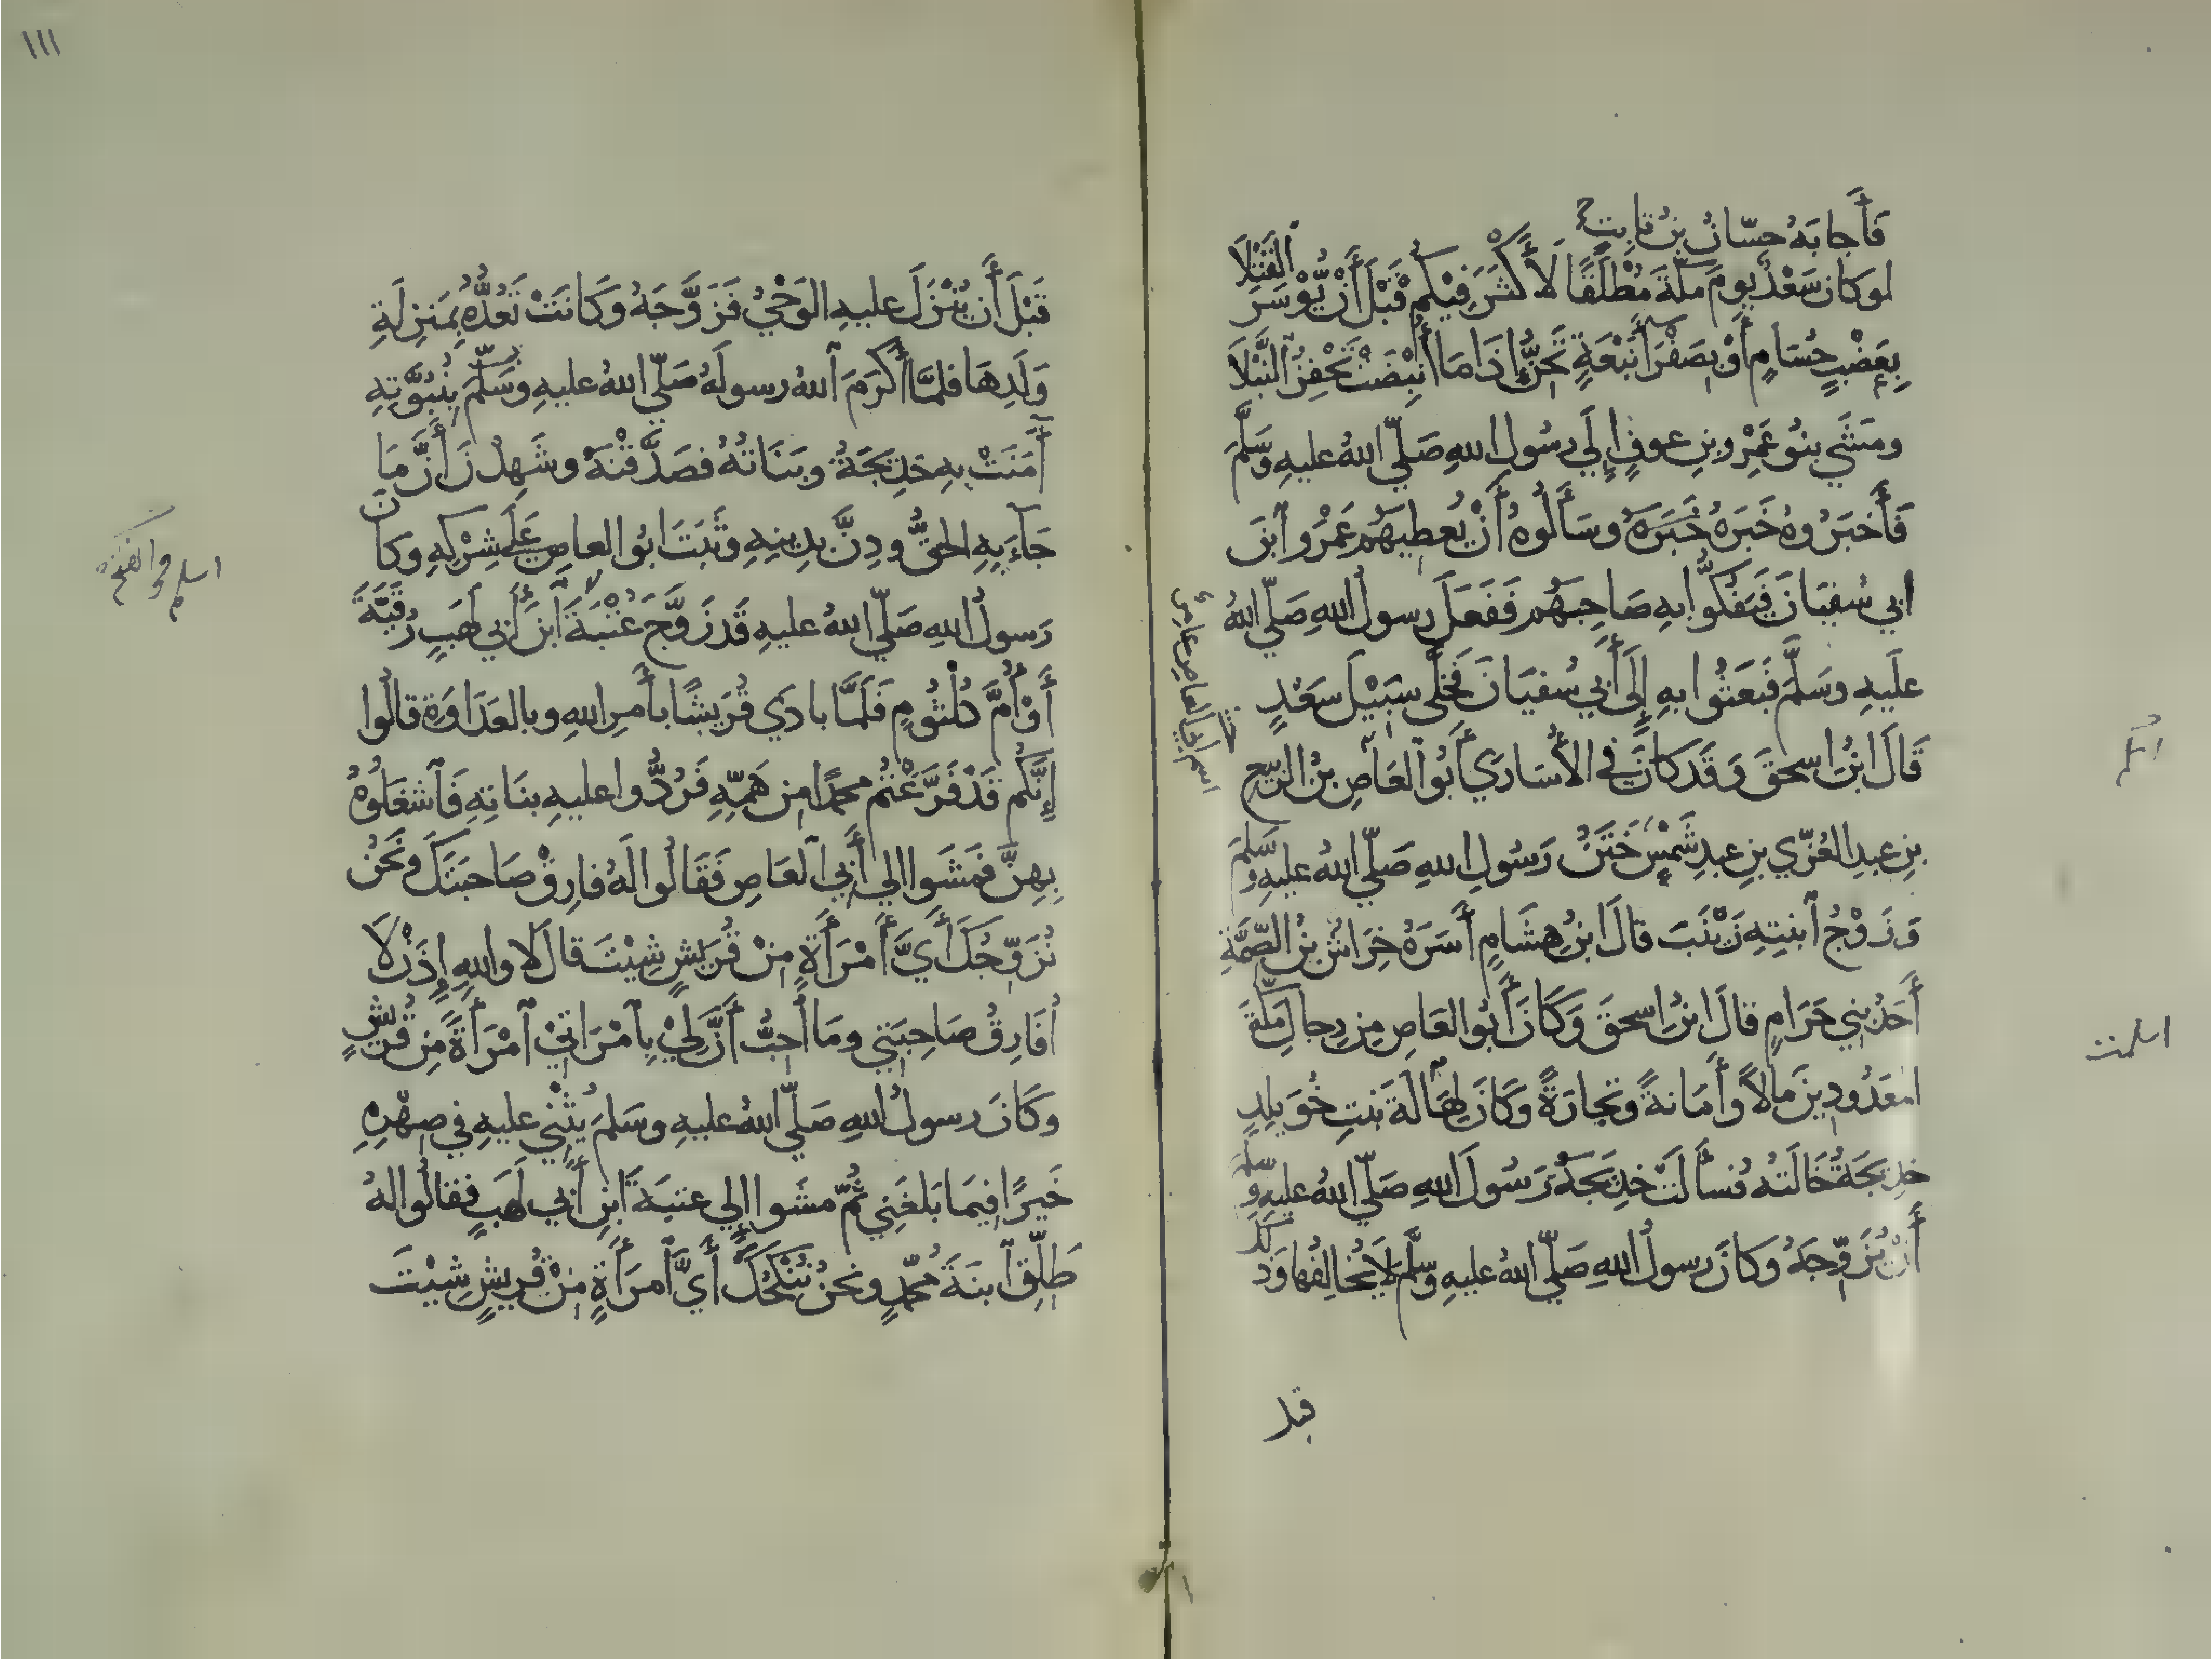 فَأَجابَهُ حسّانُ بنُ ثابتٍ
لوكان سَعْدٌ يومَ مكّةَ مُطْلَقًا لَأَكْثَرَ فِيْكُم قَبْلَ أَنْ يُوْسَرَ القَتْلَا
بِعَضْبٍ حُسَامٍ أَوْ بصَفْرَاءَ نَبْعَةٍ تَحِنُّ إذا مَا أُنْبِضَتْ تَحْفِزُ النَّبْلَا
ومَشَي بنُو عَمْرِو بنِ عوفٍ إلَي رسُولِ اللهِ صَلّي اللهُ عليهِ وسَلَّمَ
فَأَخبَرُوهُ خَبَرَهُ وسَأَلُوهُ أَنْ يُعطيهُم عَمْرَو آبْنَ
ابي سُفيَانَ فَيَفُكوُّا بهِ صَاحِبَهُم فَفَعَلَ رسولُ اللهِ صَلّي اللهُ
علَيهِ وسَلَّمَ فَبَعَثُوا بهِ إلَى أَبي سُفيَانَ فَخَلَّى سبَيْلَ سَعْدٍ
قَالَ ابنُ اسحقَ وَقَد كانَ في الأُسَارَي أَبُو العَاصِ بنُ الربيع
بنِ عبدِ العُزّي بنِ عبدِ شَمْسٍ خَتَنُ رَسُولِ اللهِ صَلّي اللهُ عليهِ وسَلم
وَزَوْجُ آبنتِهِ زَيْنَبَ قالَ ابنُ هِشَامٍ أَسَرَهُ خِرَاشُ بنُ الصِّمَّةِ
أَحَدُ بَنِي حَرَامٍ قالَ ابنُ اسحقَ وَكَانَ أَبُو العَاصِ مِن رِجالِ مَكّةَ
المعَدُودِينَ مالاً وأَمَانةً وتجارَةً وكَانَ لِهَالَةَ بنتِ خُوَيلِدٍ
خدِيجَةُ خَالَتُهُ فسأَلَتْ خدِيجَةُ رَسُولَ اللهِ صَلّي اللهُ عليهِ وسلم
أَنْ يُزَوِّجَهُ وَكانَ رسولُ اللهِ صَلّي اللهُ عليهِ وسَلَّم لَا يُخالِفُها وَذَلكَ
قبل
اسم ابي العاص
اسلم
اسلمت
١١١
قَبْلَ أَن يُنْزَلَ عليهِ الوَحْيُ فَزَوَّجَهُ وكَانَتْ تَعُدُّهُ بِمَنزِلَةِ
وَلَدِهَا فلمَّا أَكْرَمَ آللهُ رسولَهُ صَلّي اللهُ عليهِ وسَلّمَ بِنُبُوَّتِهِ
آمَنَتْ بهِ خدِيجَةُ وبَنَاتُهُ فصَدَّقْنَهُ وشَهِدْنَ أَنَّ مَا
جَآءَ بِهِ الحقُّ ودِنَّ بدِينِهِ وثَبَتَ ابُو العاصِ عَلَي شِرْكِهِ وكانَ
رَسولُ اللهِ صَلّي اللهُ عليهِ قَد زَوَّجَ عُتْبَةَ آبنَ أَبي لَهَبٍ رُقيَّةَ
أَوْ أُمَّ كُلْثُومٍ فَلَمَّا بادَي قُرَيشًا بأَمرِ اللهِ وبالعَدَاوَةِ قالُوا
إِنَّكُم قَدْ فَرَّغْتُم محمدًا مِن هَمِّهِ فَرُدُّوا عليهِ بنَاتِهِ فَآشغَلُوهُ
بِهِنَّ فمَشَوا الي أَبي العَاصِ فَقَالُوا لَهُ فارِقْ صَاحبَتَكَ ونَحْنُ
نُزَوِّجُكَ أَيَّ آمْرَأَةٍ مِنْ قُرَيشٍ شِيْتَ قالَ لا واللهِ إِذَنْ لَا
أُفَارِقُ صَاحِبَتي ومَا أُحِبُّ أَنَّ لِيْ بِآمْرَاتيْ آمْرَأَةً مِن قُريْشٍ
وكَانَ رسولُ اللهِ صَلّي اللهُ عليهِ وسَلمَ يُثْنِي عليهِ في صِهْرِهِ
خَيرًا فيمَا بَلَغَنِي ثُمّ مشَوا إلي عتبَةَ ابنِ أَبي لَهَبٍ فقالُوا لهُ
طَلِّقِ آبنَةَ محُمّدٍ ونحنُ نُنكِحُكَ أَيَّ آمرَأَةٍ مِنْ قُريشٍ شِيْتَ